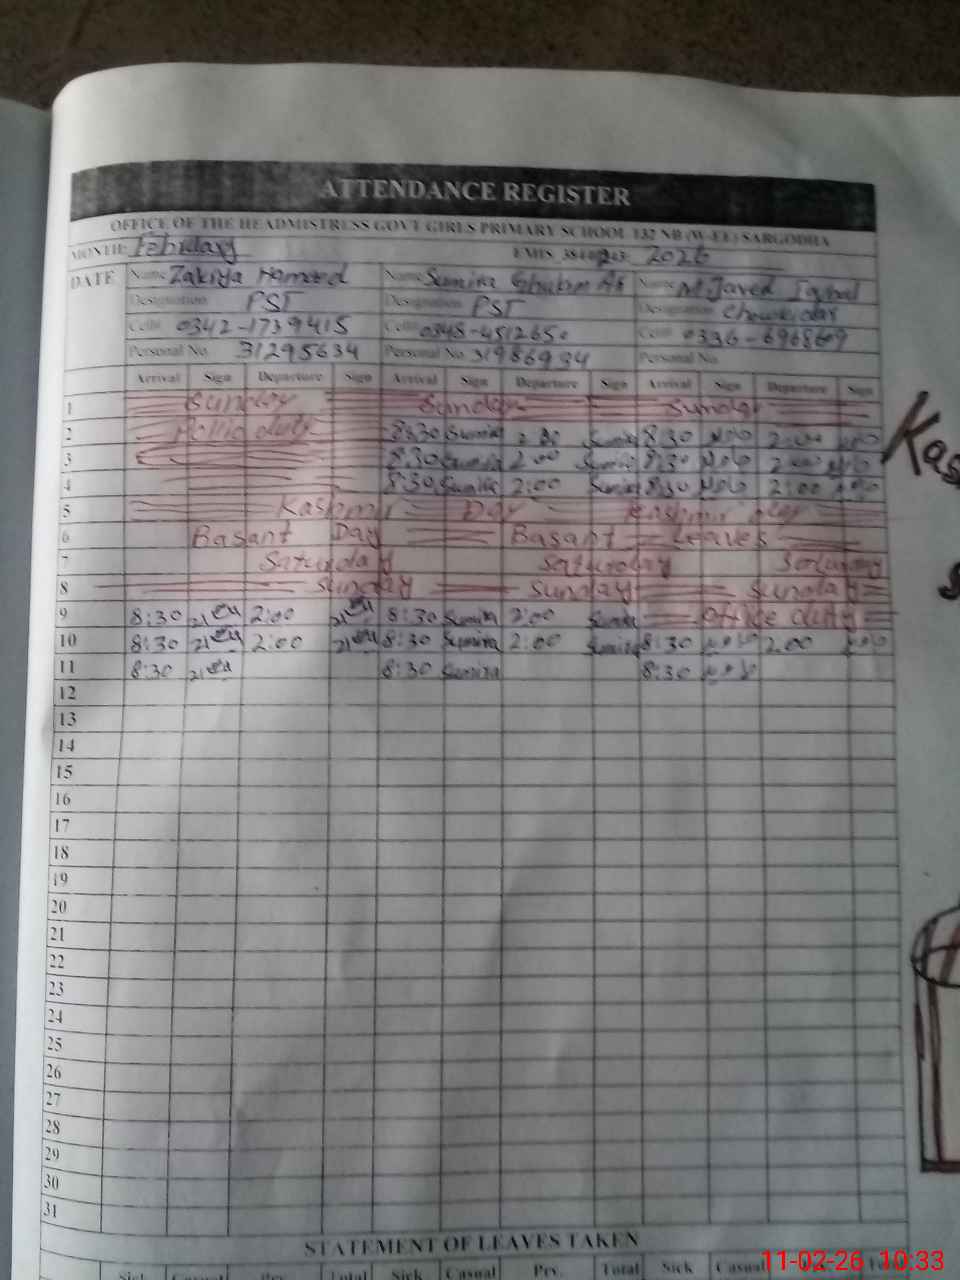 ATTENDANCE REGISTER
OFFICE OF THE HEADMISTRESS GOVT GIRLS PRIMARY SCHOOL 132 NB (W-EE) SARGODHA
MONTH: February EMIS 2026
DATE Name Zakiya Hameed Name Sumira Name M. Javed Iqbal
Designation PST Designation PST Designation Chowkidar
Cell# 0342-1739415 Cell# 0348-4512650 Cell# 0336-6968609
Personal No. 31295634 Personal No. 31986934 Personal No.
Arrival Sign Departure Sign Arrival Sign Departure Sign Arrival Sign Departure Sign
1 Sunday Sunday Sunday
2 Pollio duty 8:30 Sumira 2:00 Sumira 8:30 2:00
3 8:30 Sumira 2:00 Sumira 8:30 2:00
4 8:30 Sumira 2:00 Sumira 8:30 2:00
5 Kashmir Day Kashmir day
6 Basant Day Basant Leaves
7 Saturday Saturday Saturday
8 Sunday Sunday Sunday
9 8:30 2:00 8:30 Sumira 2:00 Sumira office duty
10 8:30 2:00 8:30 Sumira 2:00 Sumira 8:30 2.00
11 8:30 8:30 Sumira 8:30
12
13
14
15
16
17
18
19
20
21
22
23
24
25
26
27
28
29
30
31
STATEMENT OF LEAVES TAKEN
Sick Casual Prv. Total Sick Casual Prv. Total Sick Casual
Kas
11-02-26 10:33